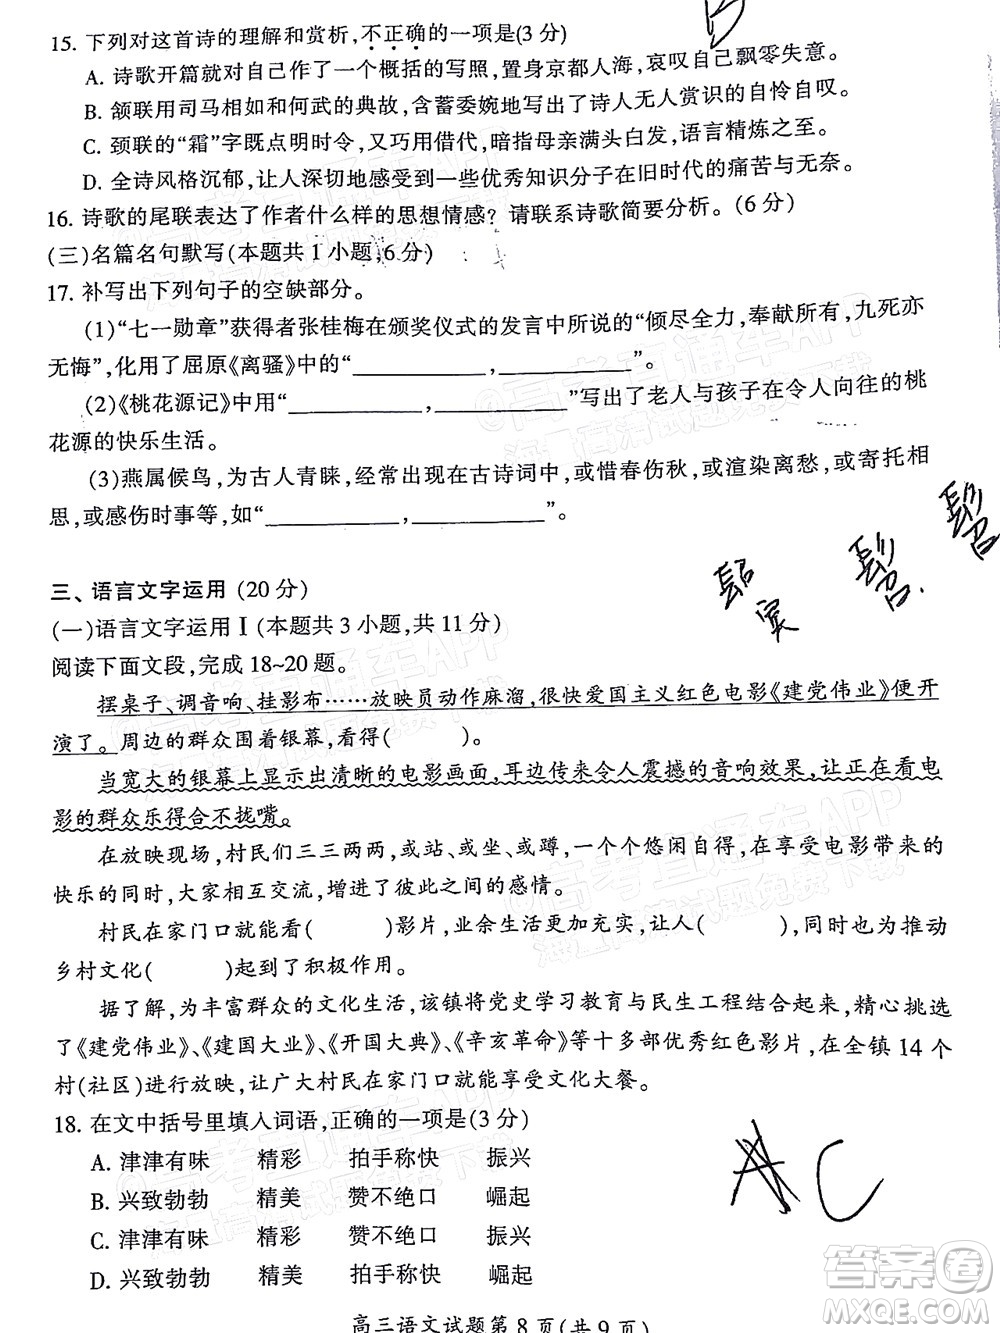 B
15. 下列对这首诗的理解和赏析,不正确的一项是(3 分)
A. 诗歌开篇就对自己作了一个概括的写照,置身京都人海,哀叹自己飘零失意。
B. 颔联用司马相如和何武的典故,含蓄委婉地写出了诗人无人赏识的自怜自叹。
C. 颈联的“霜”字既点明时令,又巧用借代,暗指母亲满头白发,语言精炼之至。
D. 全诗风格沉郁,让人深切地感受到一些优秀知识分子在旧时代的痛苦与无奈。
16. 诗歌的尾联表达了作者什么样的思想情感？请联系诗歌简要分析。(6 分)
(三)名篇名句默写(本题共 1 小题,6 分)
17. 补写出下列句子的空缺部分。
(1)“七一勋章”获得者张桂梅在颁奖仪式的发言中所说的“倾尽全力,奉献所有,九死亦
无悔”,化用了屈原《离骚》中的“__________,__________”。
(2)《桃花源记》中用“__________,__________”写出了老人与孩子在令人向往的桃
花源的快乐生活。
(3)燕属候鸟,为古人青睐,经常出现在古诗词中,或惜春伤秋,或渲染离愁,或寄托相
思,或感伤时事等,如“__________,__________”。
三、语言文字运用 (20 分)
(一)语言文字运用Ⅰ(本题共 3 小题,共 11 分)
阅读下面文段,完成 18~20 题。
摆桌子、调音响、挂影布……放映员动作麻溜,很快爱国主义红色电影《建党伟业》便开
演了。周边的群众围着银幕,看得(　　)。
当宽大的银幕上显示出清晰的电影画面,耳边传来令人震撼的音响效果,让正在看电
影的群众乐得合不拢嘴。
在放映现场,村民们三三两两,或站、或坐、或蹲,一个个悠闲自得,在享受电影带来的
快乐的同时,大家相互交流,增进了彼此之间的感情。
村民在家门口就能看(　　)影片,业余生活更加充实,让人(　　),同时也为推动
乡村文化(　　)起到了积极作用。
据了解,为丰富群众的文化生活,该镇将党史学习教育与民生工程结合起来,精心挑选
了《建党伟业》、《建国大业》、《开国大典》、《辛亥革命》等十多部优秀红色影片,在全镇 14 个
村(社区)进行放映,让广大村民在家门口就能享受文化大餐。
18. 在文中括号里填入词语,正确的一项是(3 分)
A. 津津有味　精彩　拍手称快　振兴
B. 兴致勃勃　精美　赞不绝口　崛起
C. 津津有味　精彩　赞不绝口　振兴
D. 兴致勃勃　精美　拍手称快　崛起
C
高三语文试题第 8 页(共 9 页)
答案卷
MXQE.COM